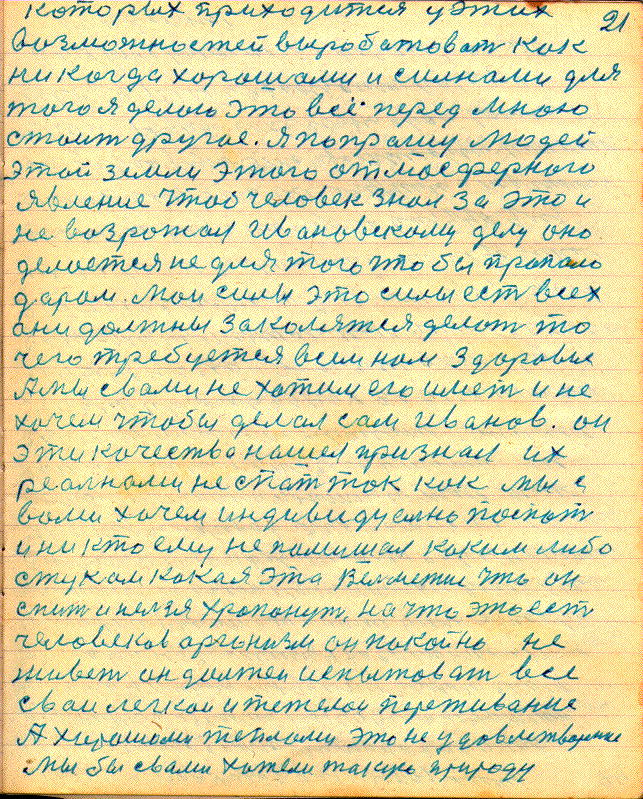 которых приходится у этих
21
возможностей выробатоват как
никогда хорошами и силнами для
того я делаю это всё перед мною
стоит другое. Я попрашу людей
этой земли этого отмосферного
явление чтоб человек знал за это и
не возрожал Ивановскому делу оно
делается не для того что бы пропало
даром. Мои силы это силы ест всех
они должны заколятся делат то
чего требуется всим нам здоровье
А мы свами не хотим его имет и не
хочем чтобы делал сам Иванов. он
эти качества нашел признал их
реалнами не спат так как мы с
вами хочем индивидуално поспат
и ни кто ему не помишал каким либо
стуком какая эта что он
спит и нелзя храпонут, на что это ест
человеков организм он покойно не
живет он должен испытоват все
сваи легкои и тежелои переживание
А хорошоми теплами это не удовлетворение
мы бы свами хотели такую природу